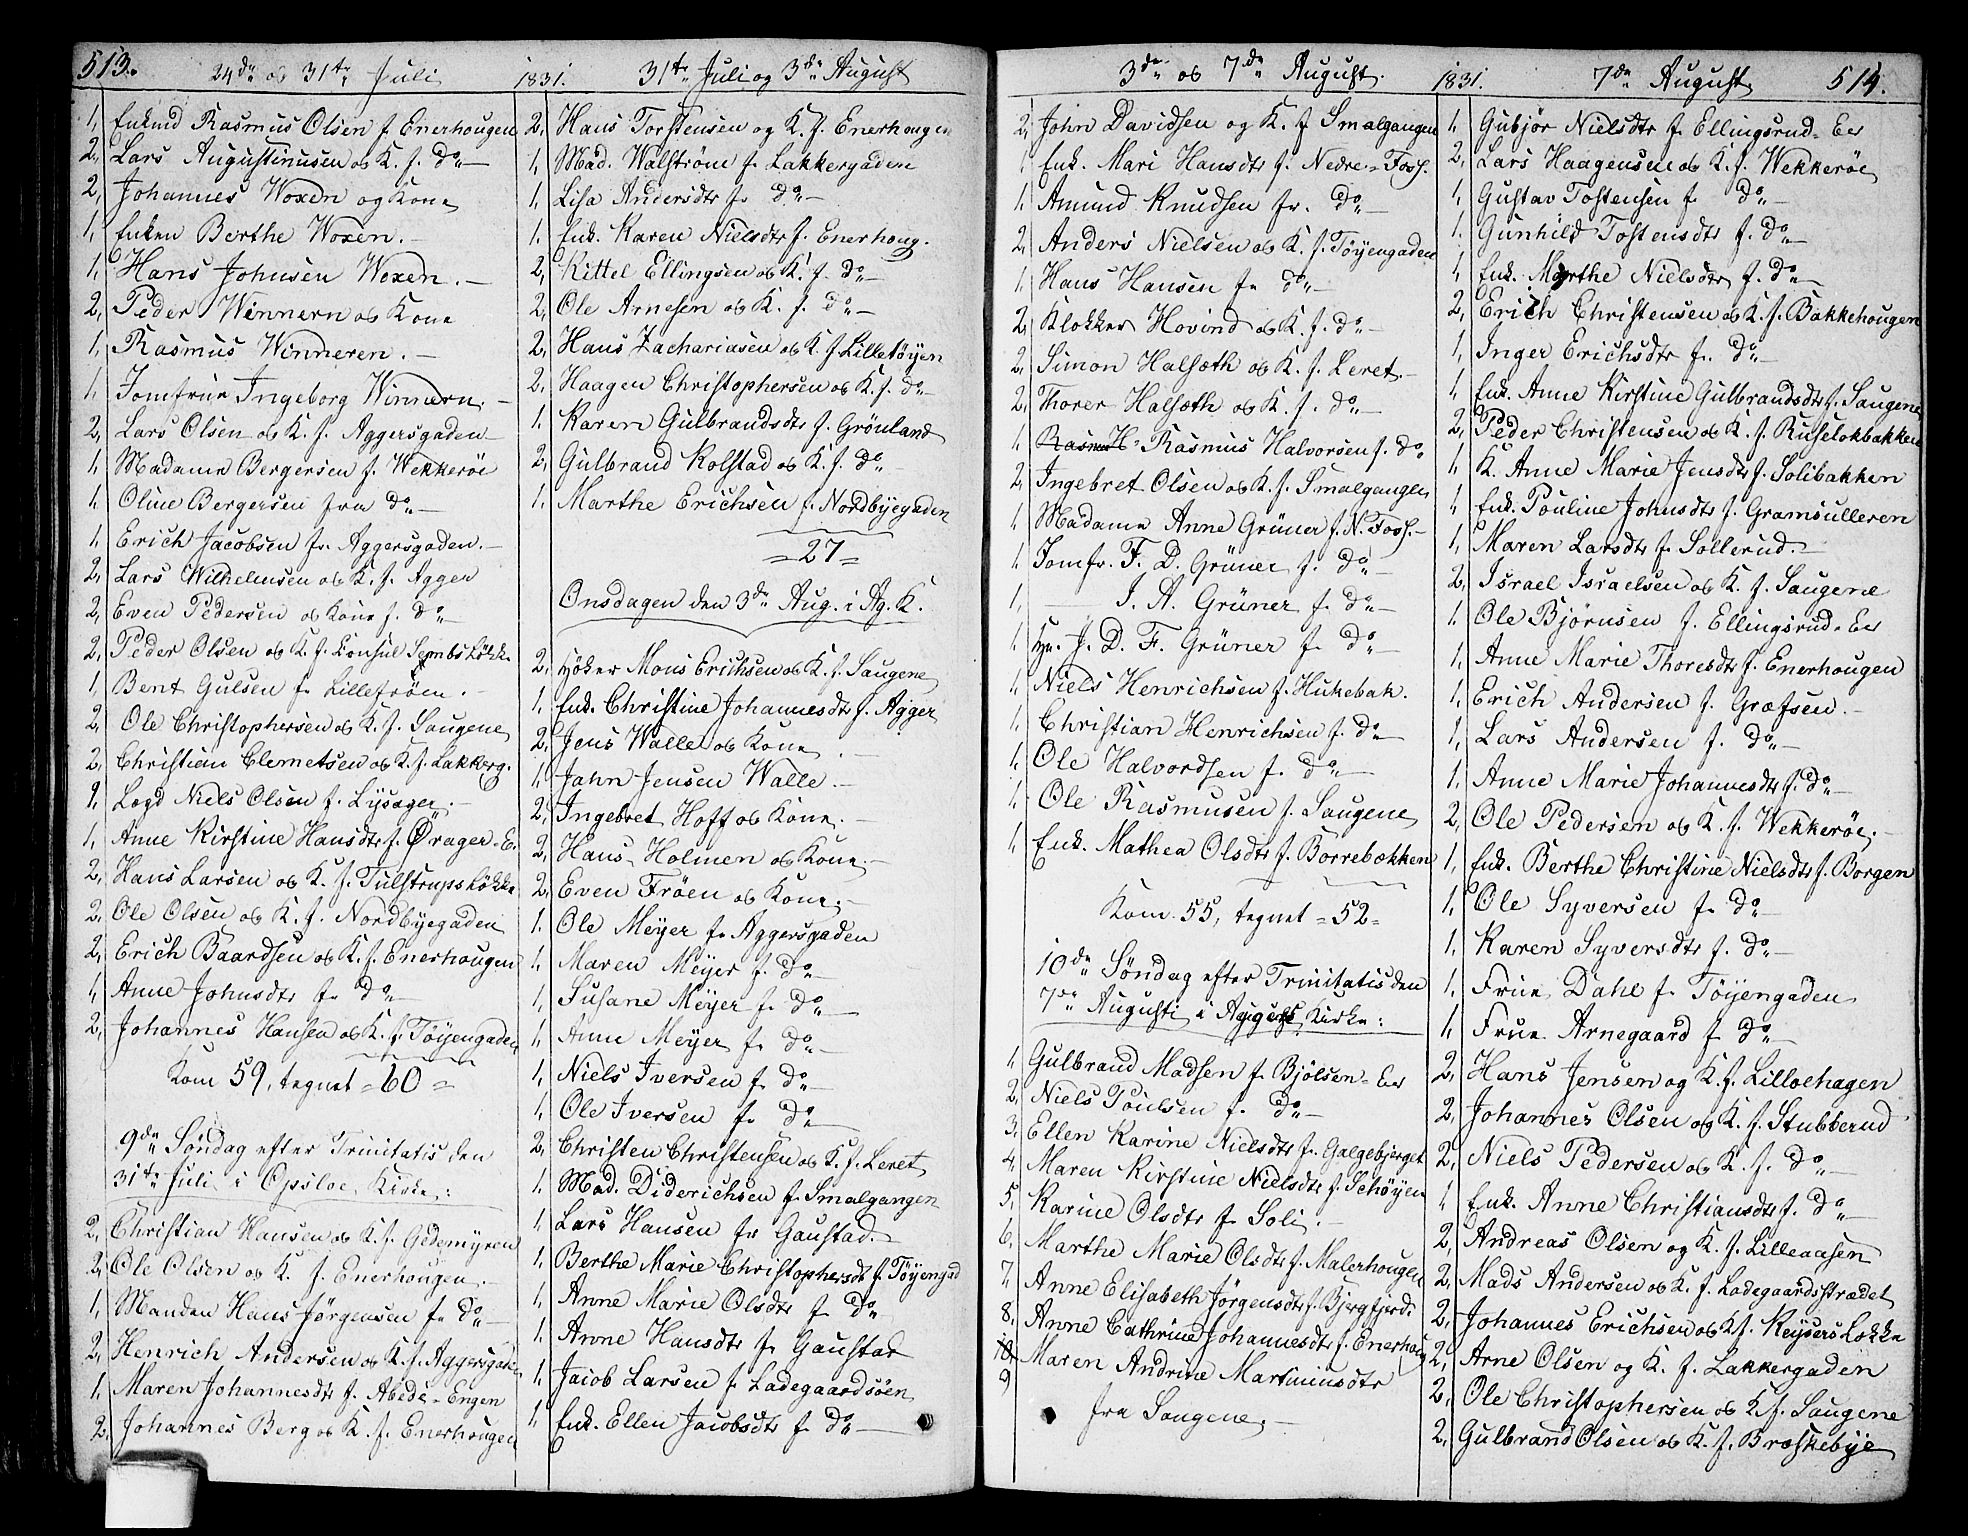 513.
24de og 31te Juli
1831.
31te Juli og 3de August
1, Enkmd Rasmus Olsen f. Enerhougen
2, Lars Augustinusen og K. f. do
2, Johannes Woxen og Kone
1, Enken Berthe Woxen.
1, Hans Johnsen Woxen.
2, Peder Winnern og Kone
1, Rasmus Winneren.
1, Jomfrue Ingeborg Winnern.
2, Lars Olsen og K. f. Aggersgaden
1, Madame Bergersen f. Wekkerøe
1, Oline Bergersen fra do
1, Erich Jacobsen fr. Aggersgaden.
2, Lars Wilhelmsen og K. f. Agger
2, Even Pedersen og Kone f. do
2, Peder Olsen og K. f. Consul Sembs Løkke
1, Bent Gulsen fr Lillefrøen.
2, Ole Christophersen og K. f. Saugene
2, Christian Clemetsen og K. f. Lakkerg.
1, Logd Niels Olsen f. Lysager.
1, Anne Kirstine Hansdtr f. Ørager-E.
2, Hans Larsen og K. f. Tulstrupsløkke
2, Ole Olsen og K. f. Nordbyegaden
2, Erich Baardsen og K. f. Enerhougen
1, Anne Johnsdtr fr do
2, Johannes Hansen og K. f. Tøyengaden
Kom 59, tegnet =60=
9de Søndag efter Trinitatis den
31te Juli i Opsloe Kirke:
2, Christian Hansen og K. f. Gedemyren
2, Ole Olsen og K. f. Enerhougen.
1, Manden Hans Jørgensen fr do
2, Henrich Andersen og K. f. Aggersgaden
1, Maren Johannesdtr f. Abeds-Engen
2, Johannes Berg og K. f. Enerhougen
2, Hans Torstensen og K. f. Enerhougen
1, Mad. Walstrøm fr Lakkergaden
1, Lisa Andersdtr fr do
1. Enk. Karen Nielsdtr f. Enerhoug.
2, Kittel Ellingsen og K. f. do
2, Ole Arnesen og K. f. do
2, Hans Zachariasen og K. f. Lilletøyen
2, Haagen Christophersen og K. f. do
1. Karen Gulbrandsdtr f. Grönland
2, Gulbrand Kolstad og K. f. do
1. Marthe Erichsen f. Nordbyegaden
=27=
Onsdagen den 3de Aug. i Ag. K.
2, Høker Mons Erichsen og K. f. Saugene
1. Enk. Christine Johannesdtr f. Agger
2, Jens Walle og Kone
1, Jahn Jensen Walle.
2, Ingebret Hoff og Kone.
2, Hans Holmen og Kone.
2, Even Frøen og Kone.
1. Ole Meyer fr Aggersgaden
1, Maren Meyer f. do
1, Susane Meyer f. do
1, Anne Meyer fr do
1, Niels Iversen f. do
1, Ole Iversen fr do
2, Christen Christensen og K. f. Leret
1. Mad. Diderichsen f. Smalgangen
1, Lars Hansen fr Gaustad.
1. Berthe Marie Christophersdt f. Tøyengad
1, Anne Marie Olsdtr f. do
1. Anne Hansdtr fr Gaustad
1. Jacob Larsen f. Ladegaardsøen
1. Enk. Ellen Jacobsdtr fr do
3de og 7de August.
1831.
7de August
514.
2, John Davidsen og K. f. Smalgangen
1 Enk. Mari Hansdtr f. Nedre-Foss.
1. Amund Knudsen fr. do
2, Anders Nielsen og K. f. Tøyengaden
1, Hans Hansen fr do
2, Klokker Hovind og K. f. do
2, Simon Halseth og K. f. Leret
2, Thorer Halseth og K. f. do
1 Rasmus H= Rasmus Halvorsen f. do
2, Ingebret Olsen og K. f. Smalgangen
1, Madame Anne Grüner f. N. Foss.
1. Jomfr. F. D. Grüner f. do
1, J. A. Grüner f. do
1. Hr. J. D. F. Grüner f. do
1. Niels Henrichsen f. Hukebak.
1. Christian Henrichsen f. do
1. Ole Halvordsen f. do
1. Ole Rasmusen f. Saugene
1. Enk. Mathea Olsdtr f. Borrebækken
Kom 55, tegnet =52=
10de Søndag efter Trinitatis den
7de Augusti i Aggers Kirke:
1, Gulbrand Madsen f. Bjølsen-Eier
2, Niels Poulsen f. do
3, Ellen Karine Nielsdtr fr. Galgebjerget
4, Maren Kirstine Nielsdtr f. Schøyen
5. Karine Olsdtr fr Soli.
6, Marthe Marie Olsdtr f. Malerhougen
7, Anne Elisabeth Jørgensdtr f. Bjergfjerd
8. Anne Cathrine Johannesdtr f. Enerhoug
10 Maren Andrine Martiniusdtr
9
fra Saugene.
1, Gubjør Nielsdtr f. Ellingsrud-Eier
2, Lars Haagensen og K. f. Wekkerøe
1, Gustav Tostensen f. do
1. Gunhild Tostensdtr f. do
1 Enk. Marthe Nielsdtr f. do
2, Erich Christensen og K. f. Bakkehougen
1, Inger Erichsdtr f. do
1, Enk. Anne Kirstine Gulbrandsdtr f. Saugene
2, Peder Christensen og K. f. Ruseløkbakken
1, K. Anne Marie Jensdtr f. Solibakken
1 Enk. Pouline Johnsdtr f. Gramsulleren
1, Maren Larsdtr fr Sollerud
2, Israel Israelsen og K. f. Saugene
1. Ole Bjørnsen f. Ellingsrud-Eier
1, Anne Marie Thoresdtr f. Enerhougen
1, Erich Andersen f. Græfsen.
1, Lars Andersen f. do
1, Anne Marie Johannesdtr f. do
2, Ole Pedersen og K. f. Wekkerøe
1, Enk. Berthe Christine Nielsdtr f. Borgen
1, Ole Syversen fr do
1, Karen Syversdtr f. do
1, Frue Dahl fr Tøyengaden
1, Frue Arnegaard f. do
2, Hans Jensen og K. f. Lilloehagen
2, Johannes Olsen og K. f. Stubberud
2, Niels Pedersen og K. f. do
1 Enk. Anne Christiansdtr f. do
2, Andreas Olsen og K. f. Lilleaasen
2, Mads Andersen og K. f. Ladegaardsstrædet
2, Johannes Erichsen og K. f. Keysers Løkke
2, Arne Olsen og K. f. Lakkergaden
2, Ole Christophersen og K. f. Saugene
2, Gulbrand Olsen og K. f. Broskebye